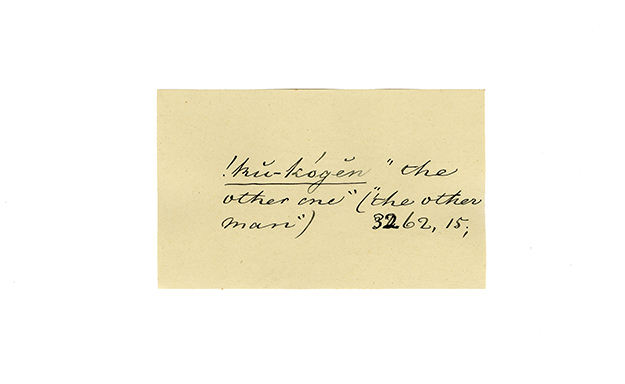 !kŭ-kógĕn " the
other one" ("the other
man")  3262, 15;